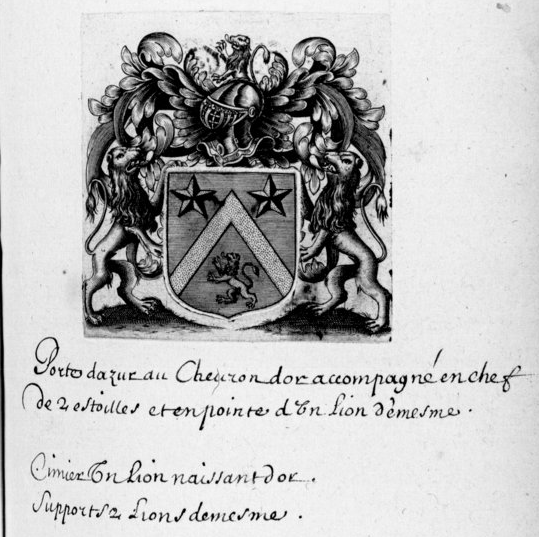 Porte dazur au Cheuron dor accompagné en chef
de 2 estoilles et en pointe d'Vn Lion d'emesme .
Cimier Vn Lion naissant dor .
Supports 2 Lions demesme .